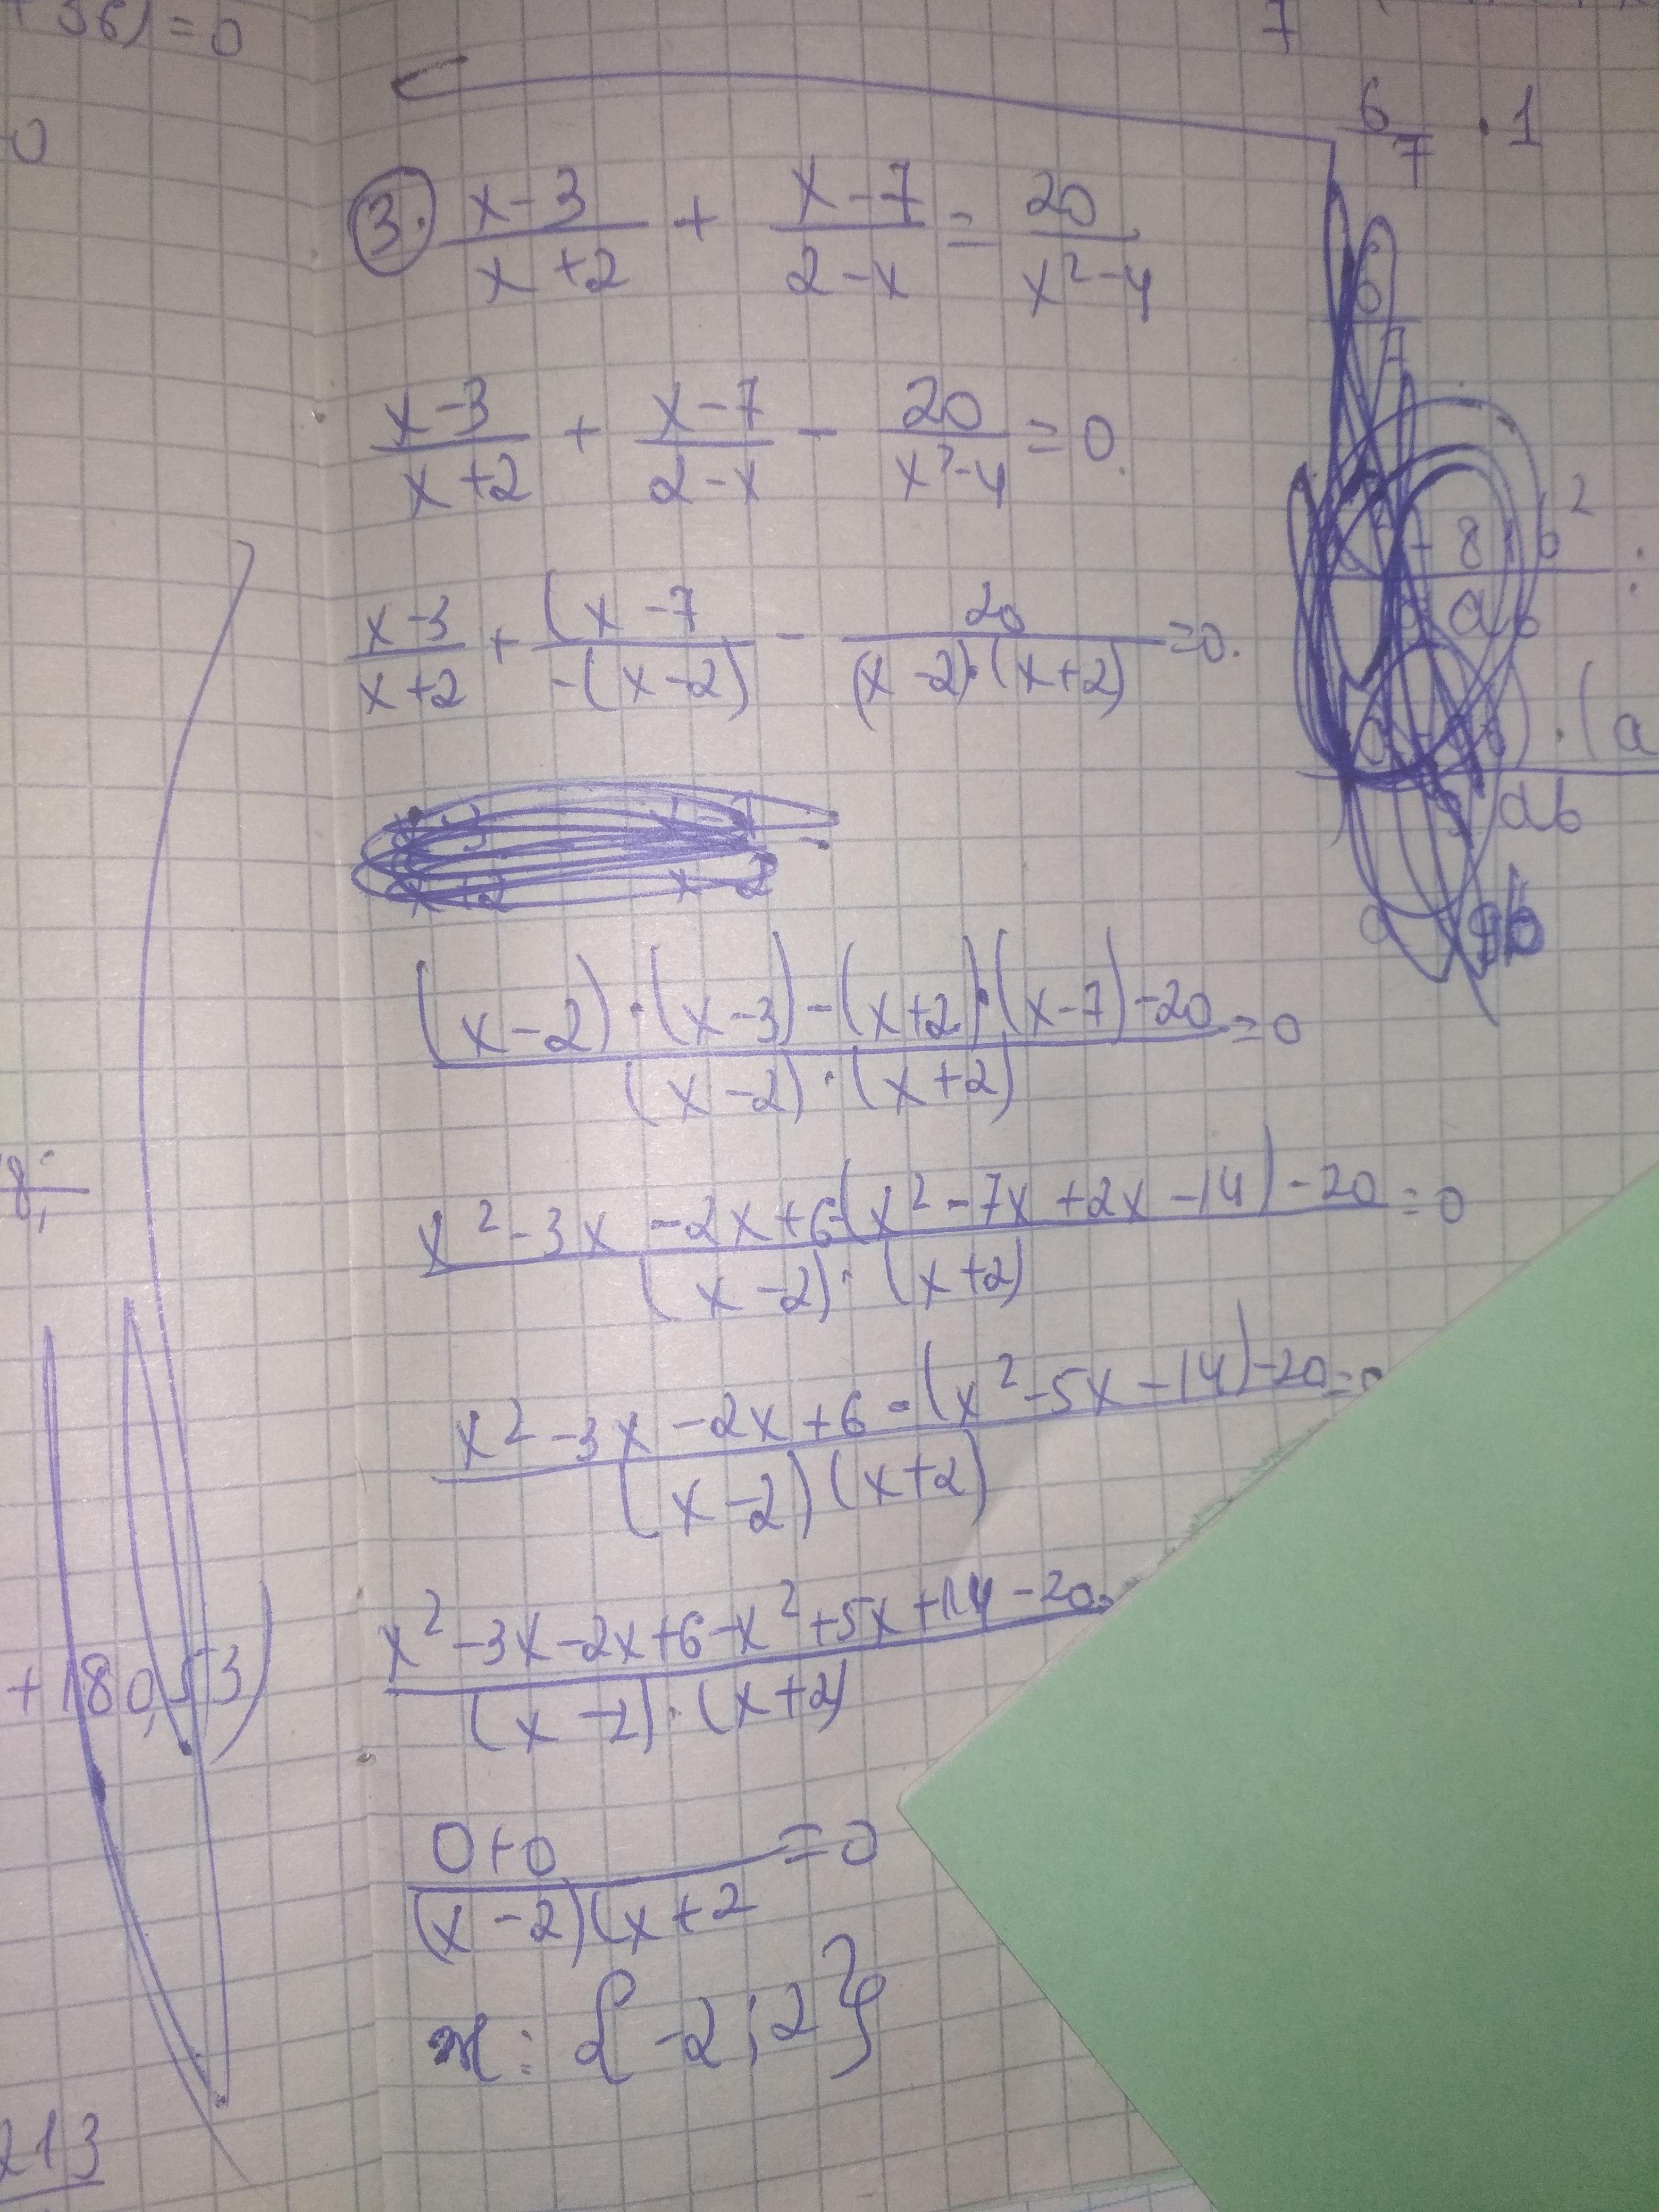 +36) = 0
0
7
6/7 · 1
3. (x-3)/(x+2) + (x-7)/(2-x) = 20/(x²-4)
(x-3)/(x+2) + (x-7)/(2-x) - 20/(x²-4) = 0.
(x-3)/(x+2) + (x-7/-(x-2) - 20/((x-2)·(x+2)) = 0.
((x-2)·(x-3)-(x+2)·(x-7)-20)/((x-2)·(x+2)) = 0
(x²-3x-2x+6-(x²-7x+2x-14)-20)/((x-2)·(x+2)) = 0
(x²-3x-2x+6-(x²-5x-14)-20)/((x-2)(x+2)) = 0
(x²-3x-2x+6-x²+5x+14-20)/((x-2)·(x+2)) =
(0+0)/((x-2)(x+2 = 0
x: {-2;2}
8,
+180,53)
213
- 81b²
ab
) · (a
ab
9b